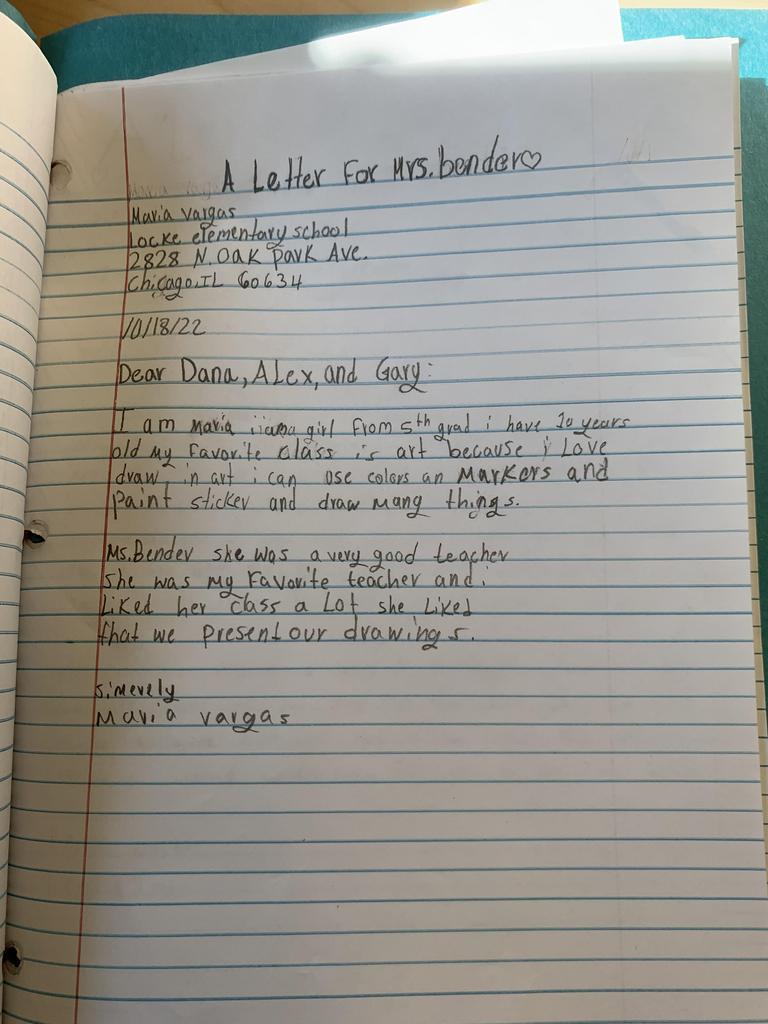 A Letter For Mrs.bender♡
Maria vargas
Locke elementary school
2828 N. Oak park Ave.
Chicago, IL 60634
10/18/22
Dear Dana, ALex, and Gary:
I am Maria girl from 5th grad i have 10 years
old my favorite class is art because i Love
draw, in art i can use colors an Markers and
paint sticker and draw many things.
Ms.Bender she was a very good teacher
she was my favorite teacher and i
Liked her class a Lot she Liked
that we present our drawings.
sincerely
Maria vargas